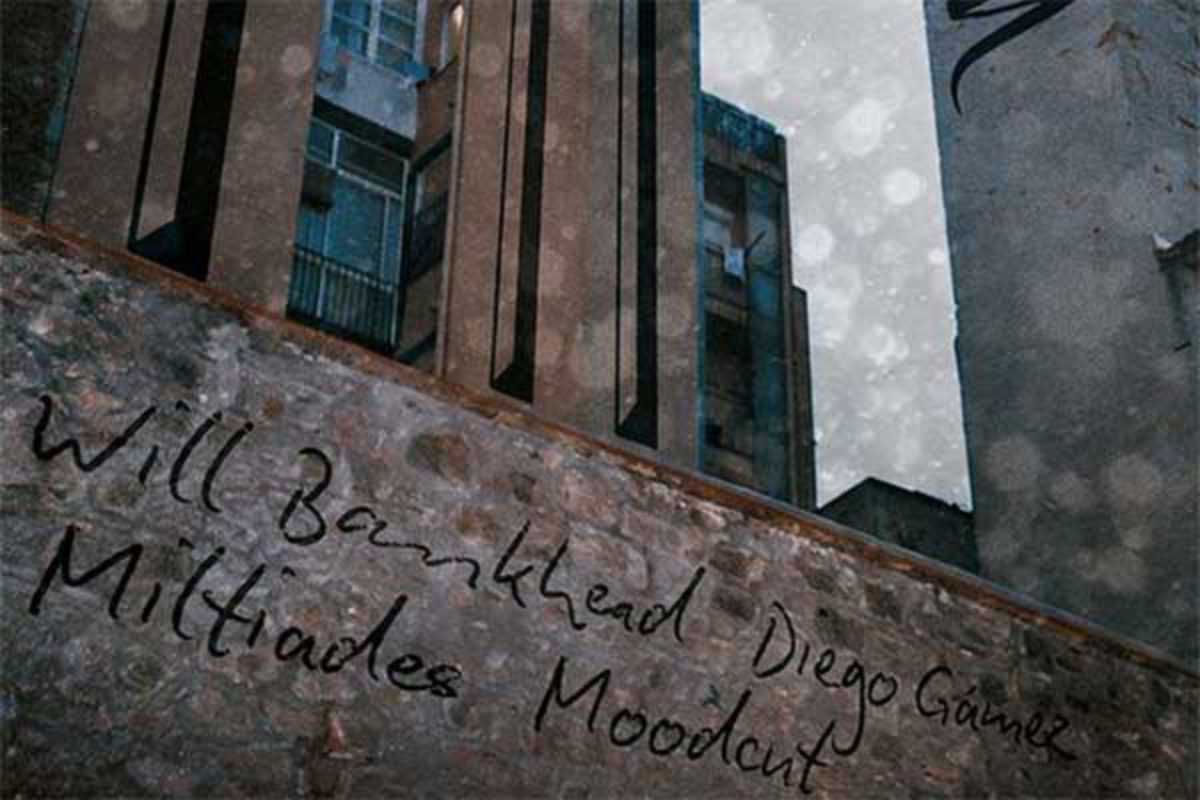 Will Bankhead Diego Gámez
Miltiades Moodcut